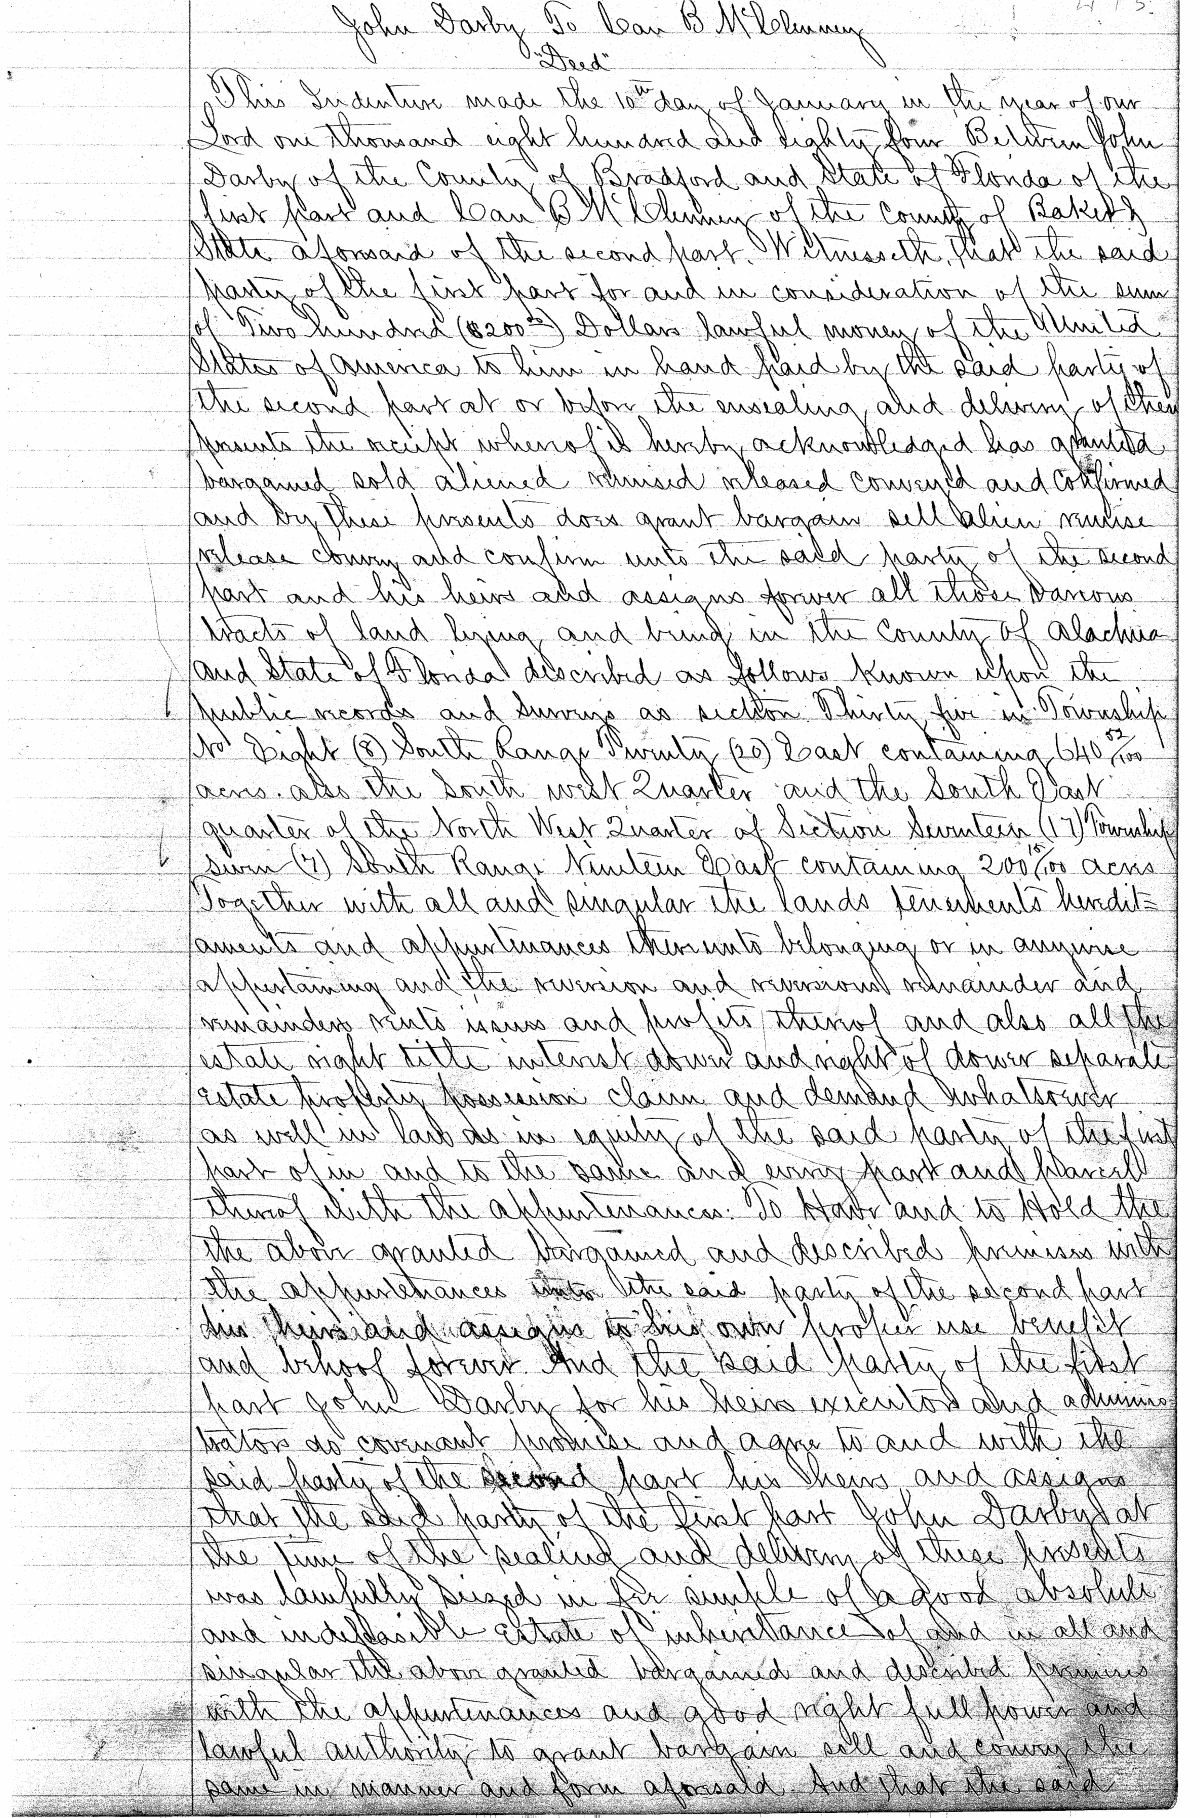 413.
John Darby To Can B McClenney
"Deed"
This Indenture made the 10th day of January in the year of our
Lord one thousand eight hundred and Eighty four Between John
Darby of the County of Bradford and State of Florida of the
first part and Can B McClenney of the County of Baker &
State aforesaid of the second part. Witnesseth, that the said
party of the first part for and in consideration of the sum
of Two hundred ($200 00) Dollars lawful money of the United
States of America to him in hand paid by the said party of
the second part at or before the ensealing and delivery of these
presents the receipt whereof is hereby acknowledged has granted
bargained sold aliened remised released conveyed and Confirmed
and by these presents does grant bargain sell alien remise
release convey and confirm unto the said party of the second
part and his heirs and assigns forever all those various
tracts of land lying and being in the County of Alachua
and State of Florida described as follows known upon the
public records and Surveys as section Thirty five in Township
No Eight (8) South Range Twenty (20) East containing 640 52/100
acres. also the South west Quarter and the South East
quarter of the North West Quarter of Section Seventeen (17) Township
Seven (7) South Range Nineteen East containing 200 15/100 acres
Together with all and singular the lands tenements heredit=
aments and appurtenances thereunto belonging or in anywise
appertaining and the reversion and reversions remainder and
remainders rents issues and profits thereof and also all the
estate right title interest dower and right of dower separate
Estate property possession claim and demand whatsoever
as well in law as in equity of the said party of the first
part of in and to the same and every part and Parcell
thereof with the appurtenances. To Have and to Hold the
the above granted bargained and described premises with
the appurtenances unto the said party of the second part
his heirs and assigns to his own proper use benefit
and behoof forever. And the said party of the first
part John Darby for his heirs executors and adminis
trators do covenant promise and agree to and with the
said party of the second part his heirs and assigns
that the said party of the first part John Darby at
the time of the sealing and delivery of these presents
was lawfully Seized in fee simple of a good absolute
and indefeasible Estate of inheritance of and in all and
singular the above granted bargained and described premises
with the appurtenances and good right full power and
lawful authority to grant bargain sell and convey the
same in manner and form aforesaid. And that the said